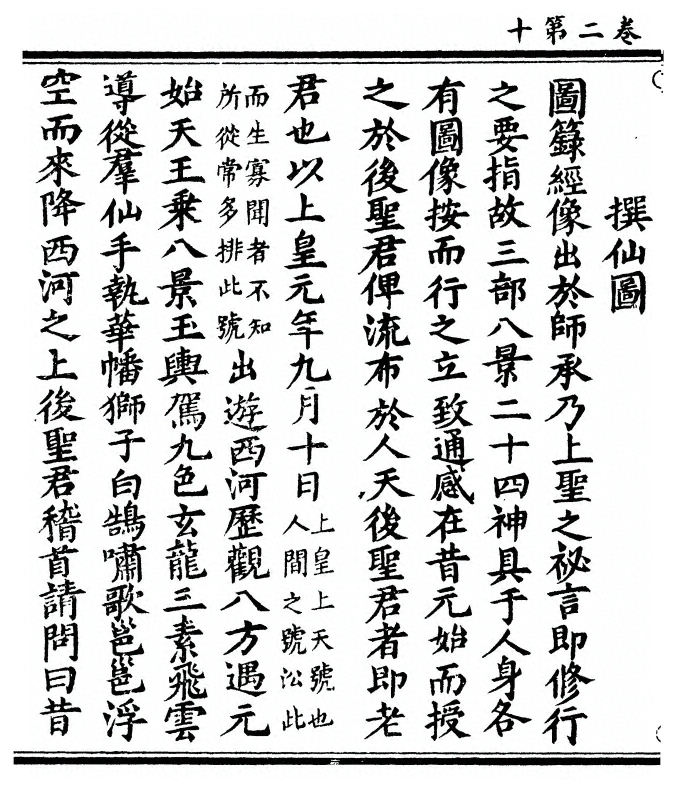 卷二第十
撰仙圖
圖籙經像出於師承乃上聖之祕言即修行
之要指故三部八景二十四神具于人身各
有圖像按而行之立致通感在昔元始而授
之於後聖君俾流布於人天後聖君者即老
君也以上皇元年九月十日上皇上天號也人間之號沿此
而生寡聞者不知所從常多排此號出遊西河歷觀八方遇元
始天王乘八景玉輿駕九色玄龍三素飛雲
導從羣仙手執華幡獅子白鵠嘯歌邕邕浮
空而來降西河之上後聖君稽首請問曰昔